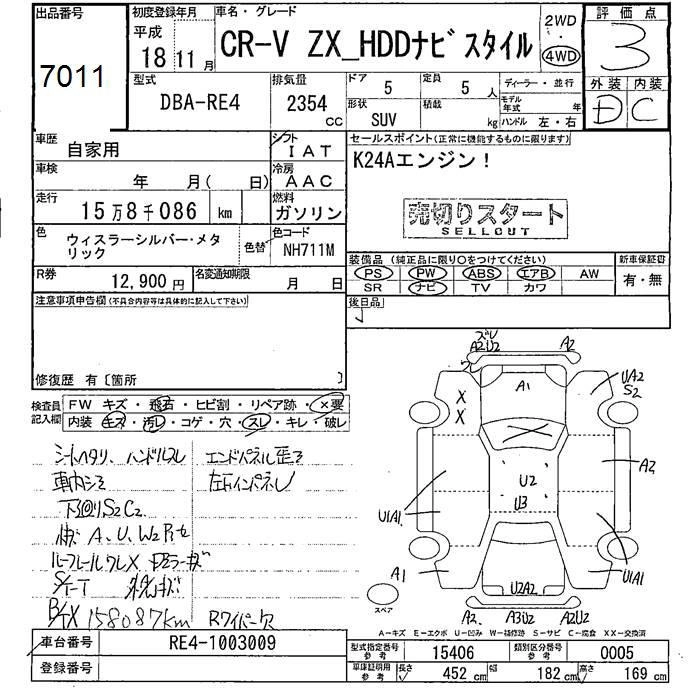 出品番号
7011
初度登録年月
平成
18 11月
車名・グレード
CR-V ZX_HDDナビスタイル
2WD
・
4WD
評価点
3
外装 内装
D C
型式
DBA-RE4
排気量
2354
cc
ドア
5
定員
5
人
形状
SUV
積載
kg
ディーラー・並行
モデル年式 年
ハンドル 左・右
車歴
自家用
シフト
IAT
セールスポイント(正常に機能するものに限ります)
K24Aエンジン!
車検
年 月( 日)
冷房
AAC
走行
15万8千086 km
燃料
ガソリン
売切りスタート
SELLOUT
色
ウィスラーシルバー・メタ
リック
色替
色コード
NH711M
装備品(純正品に限り○をつけてください)
新車保証書
PS PW ABS エアB AW
SR ナビ TV カワ
有・無
R券
12,900 円
名変通知期限
月 日
注意事項申告欄(不具合内容等は具体的に記入して下さい)
後日品
修復歴 有〔箇所 〕
検査員
記入欄
FW キズ・飛石・ヒビ割・リペア跡・×要
内装 キズ・汚レ・コゲ・穴・スレ・キレ・破レ
シートヘタリ、ハンドルスレ
エンドパネル歪ミ
車内シミ
下廻りS2C2
A、U、W2
ルーフレールワレX
S/T-T
158087km
Rワイパー欠
A2U2
A2
A1
X
X
UA2
S2
A2
U2
U3
U1A1
U1A1
A1
U2A2
A2
A3U2
A2U2
スペア
A-キズ E-エクボ U-凹み W-補修跡 S-サビ C-腐食 XX-交換済
車台番号
RE4-1003009
登録番号
型式指定番号
参考
15406
類別区分番号
参考
0005
車庫証明用
参考
長さ
452 cm
幅
182 cm
高さ
169 cm